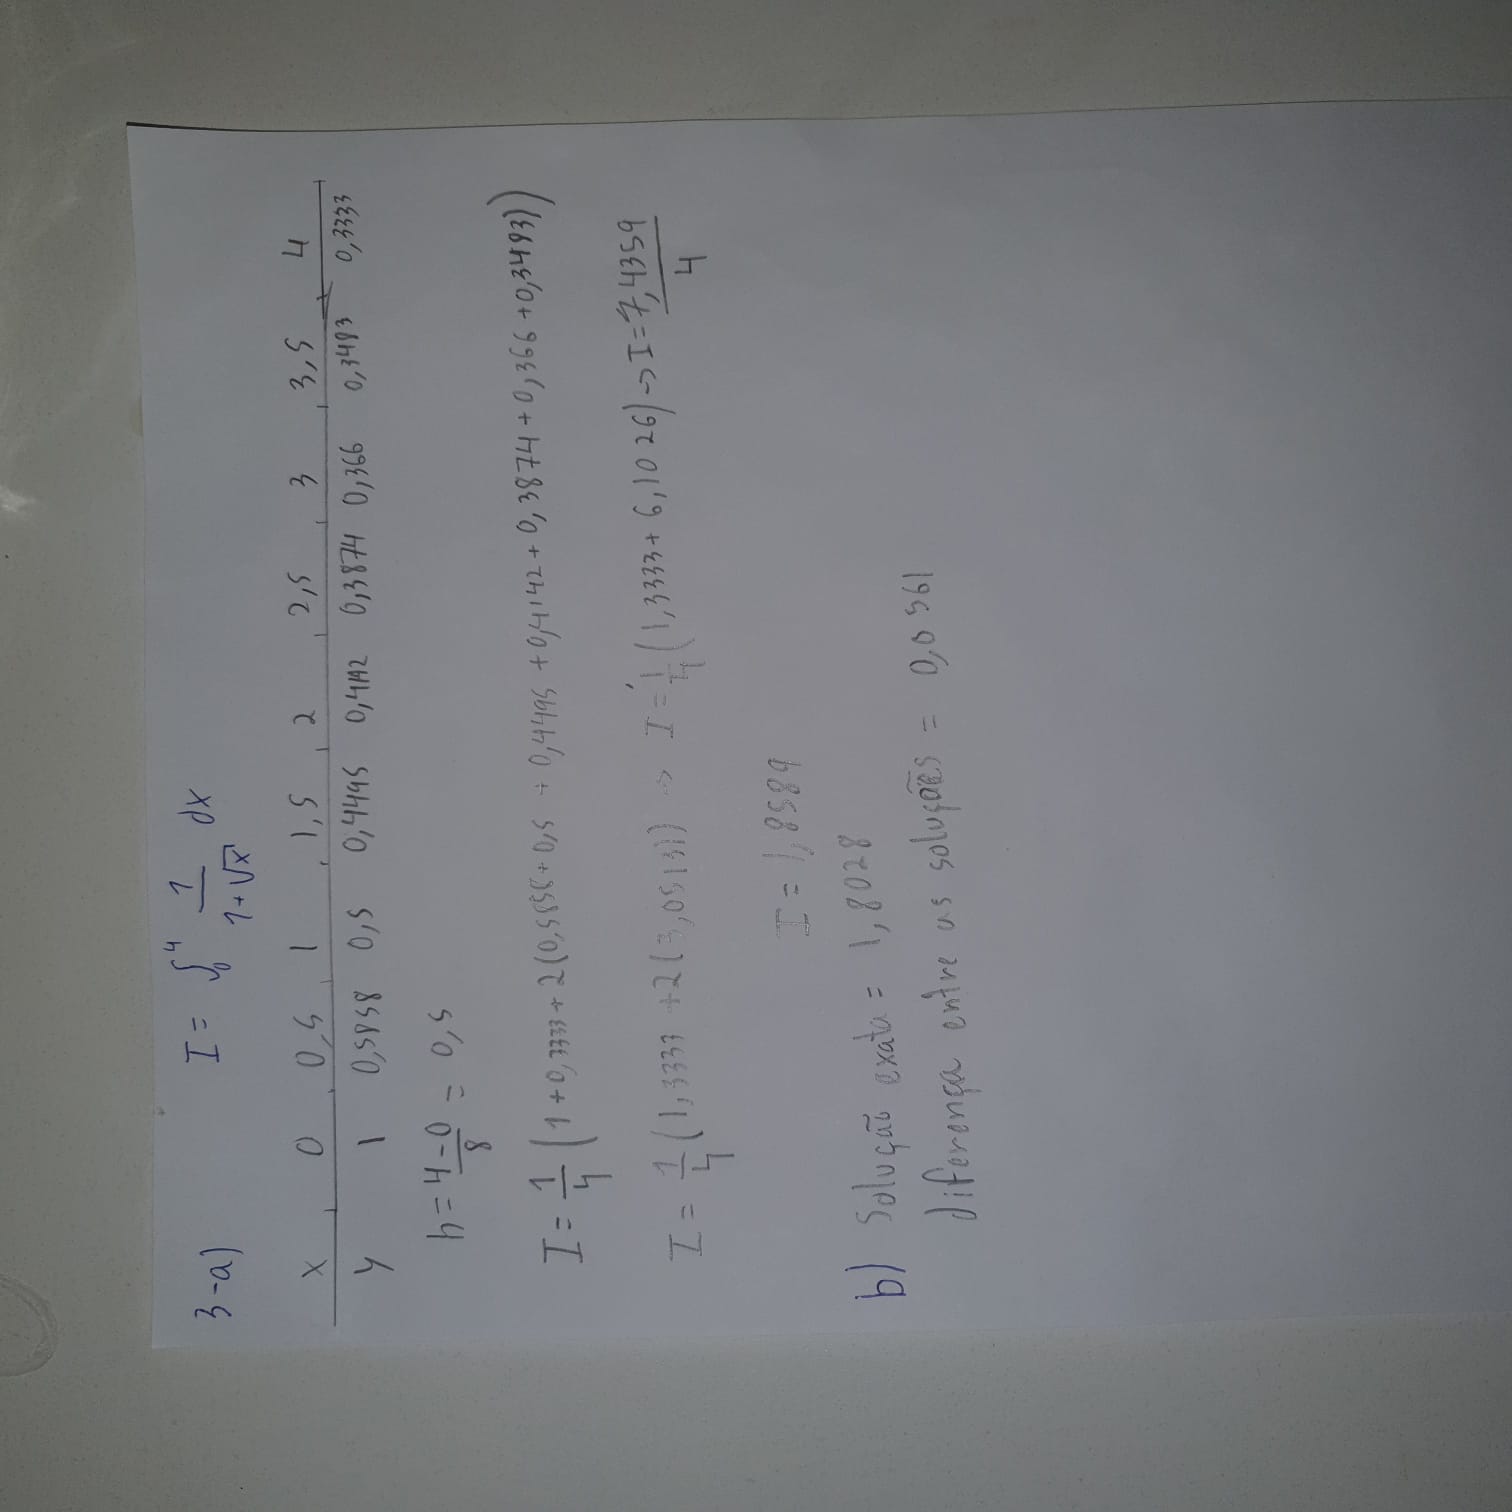 3-a) I = ∫₀⁴ 1/(1+√x) dx
x 0 0,5 1 1,5 2 2,5 3 3,5 4
y 1 0,5858 0,5 0,4495 0,4142 0,3874 0,366 0,3483 0,3333
h = (4-0)/8 = 0,5
I = 1/4 (1 + 0,3333 + 2(0,5858 + 0,5 + 0,4495 + 0,4142 + 0,3874 + 0,366 + 0,3483))
I = 1/4 (1,3333 + 2(3,0513)) -> I = 1/4 (1,3333 + 6,1026) -> I = 7,4359/4
I = 1,8589
b) Solução exata = 1,8028
diferença entre as soluções = 0,0561